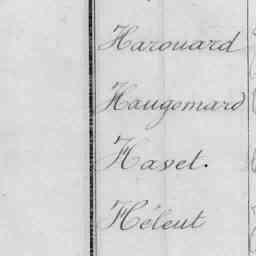 Harouard
Haugomard
Havet.
Héleut